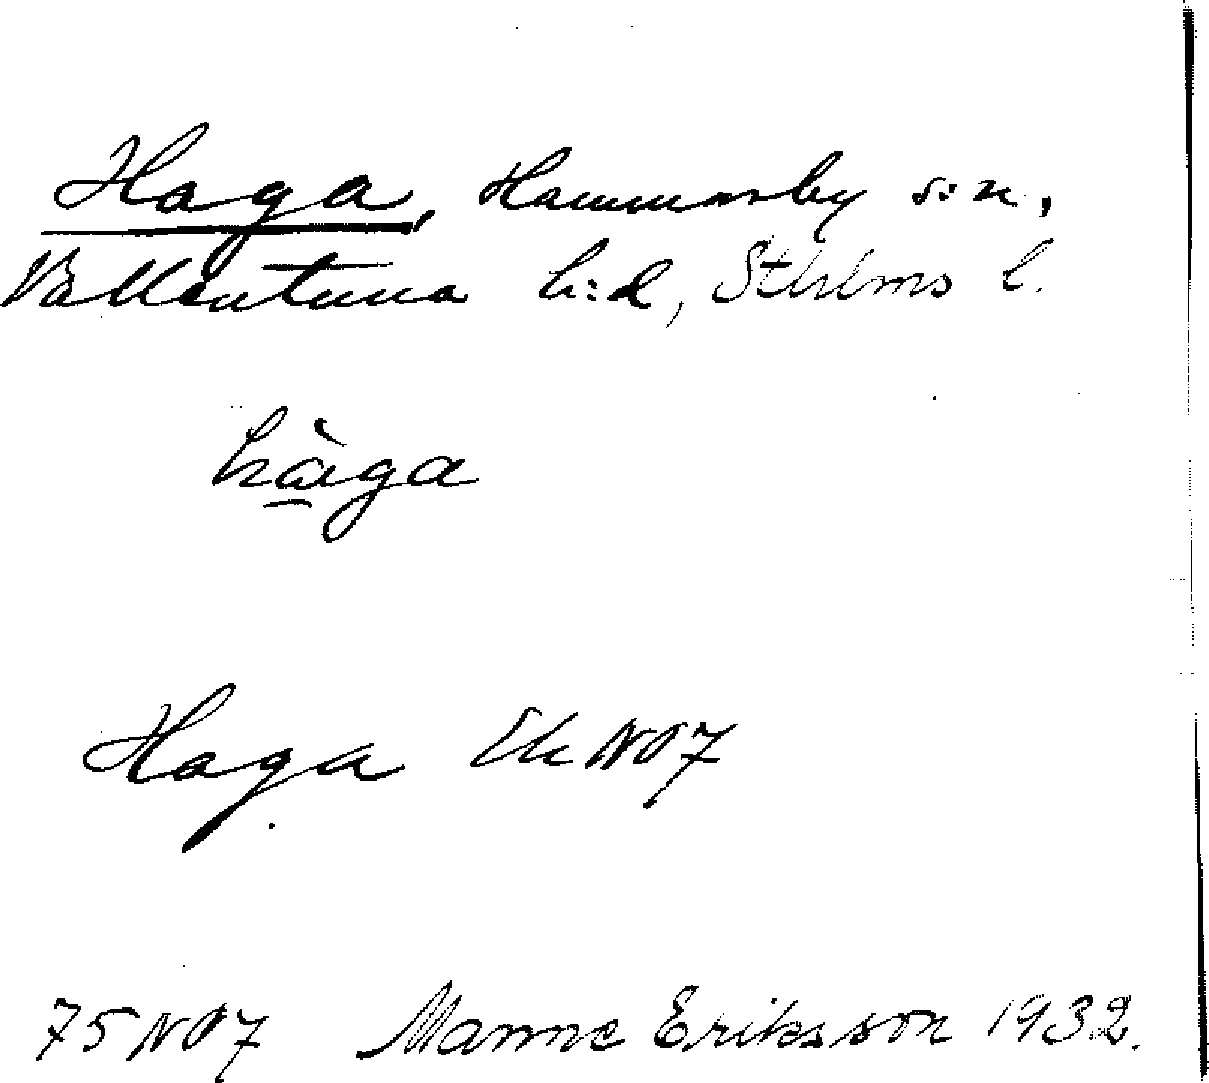 Haga, Hammarby s:n,
Vallentuna h:d, Sthlms l.
hàga
Haga Ek NO7
75 NO7 Manne Eriksson 1932.